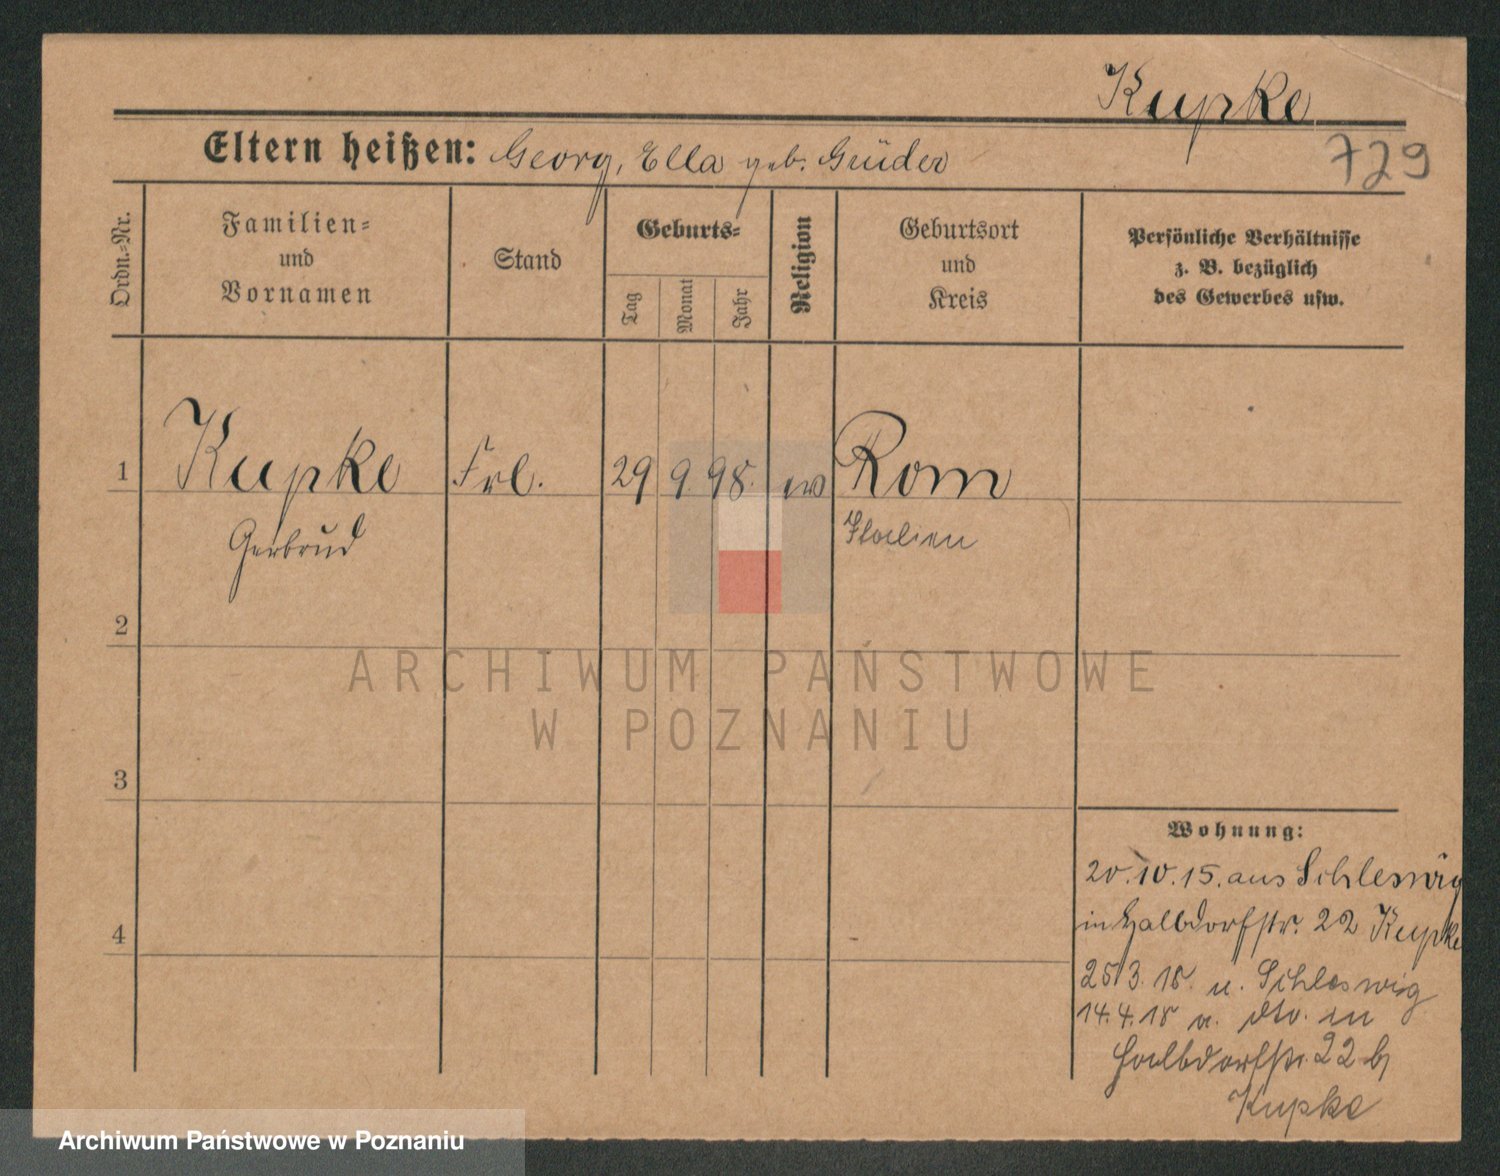 Kupke
729
Eltern heißen: Georg, Ella geb. Grüder
Ordn.-Nr.
Familien-
und
Vornamen
Stand
Geburts-
Tag
Monat
Jahr
Religion
Geburtsort
und
Kreis
Persönliche Verhältnisse
z. B. bezüglich
des Gewerbes usw.
1 Kupke Frl. 29 9. 98. ev Rom
Gertrud Italien
2
ARCHIWUM PAŃSTWOWE
W POZNANIU
3
Wohnung:
20.10.15. aus Schleswig
in Halbdorfstr. 22 Kupke
4
25/3. 18. n. Schleswig
14.4.18 v. dto. in
Halbdorfstr. 22 b/
Kupke
Archiwum Państwowe w Poznaniu